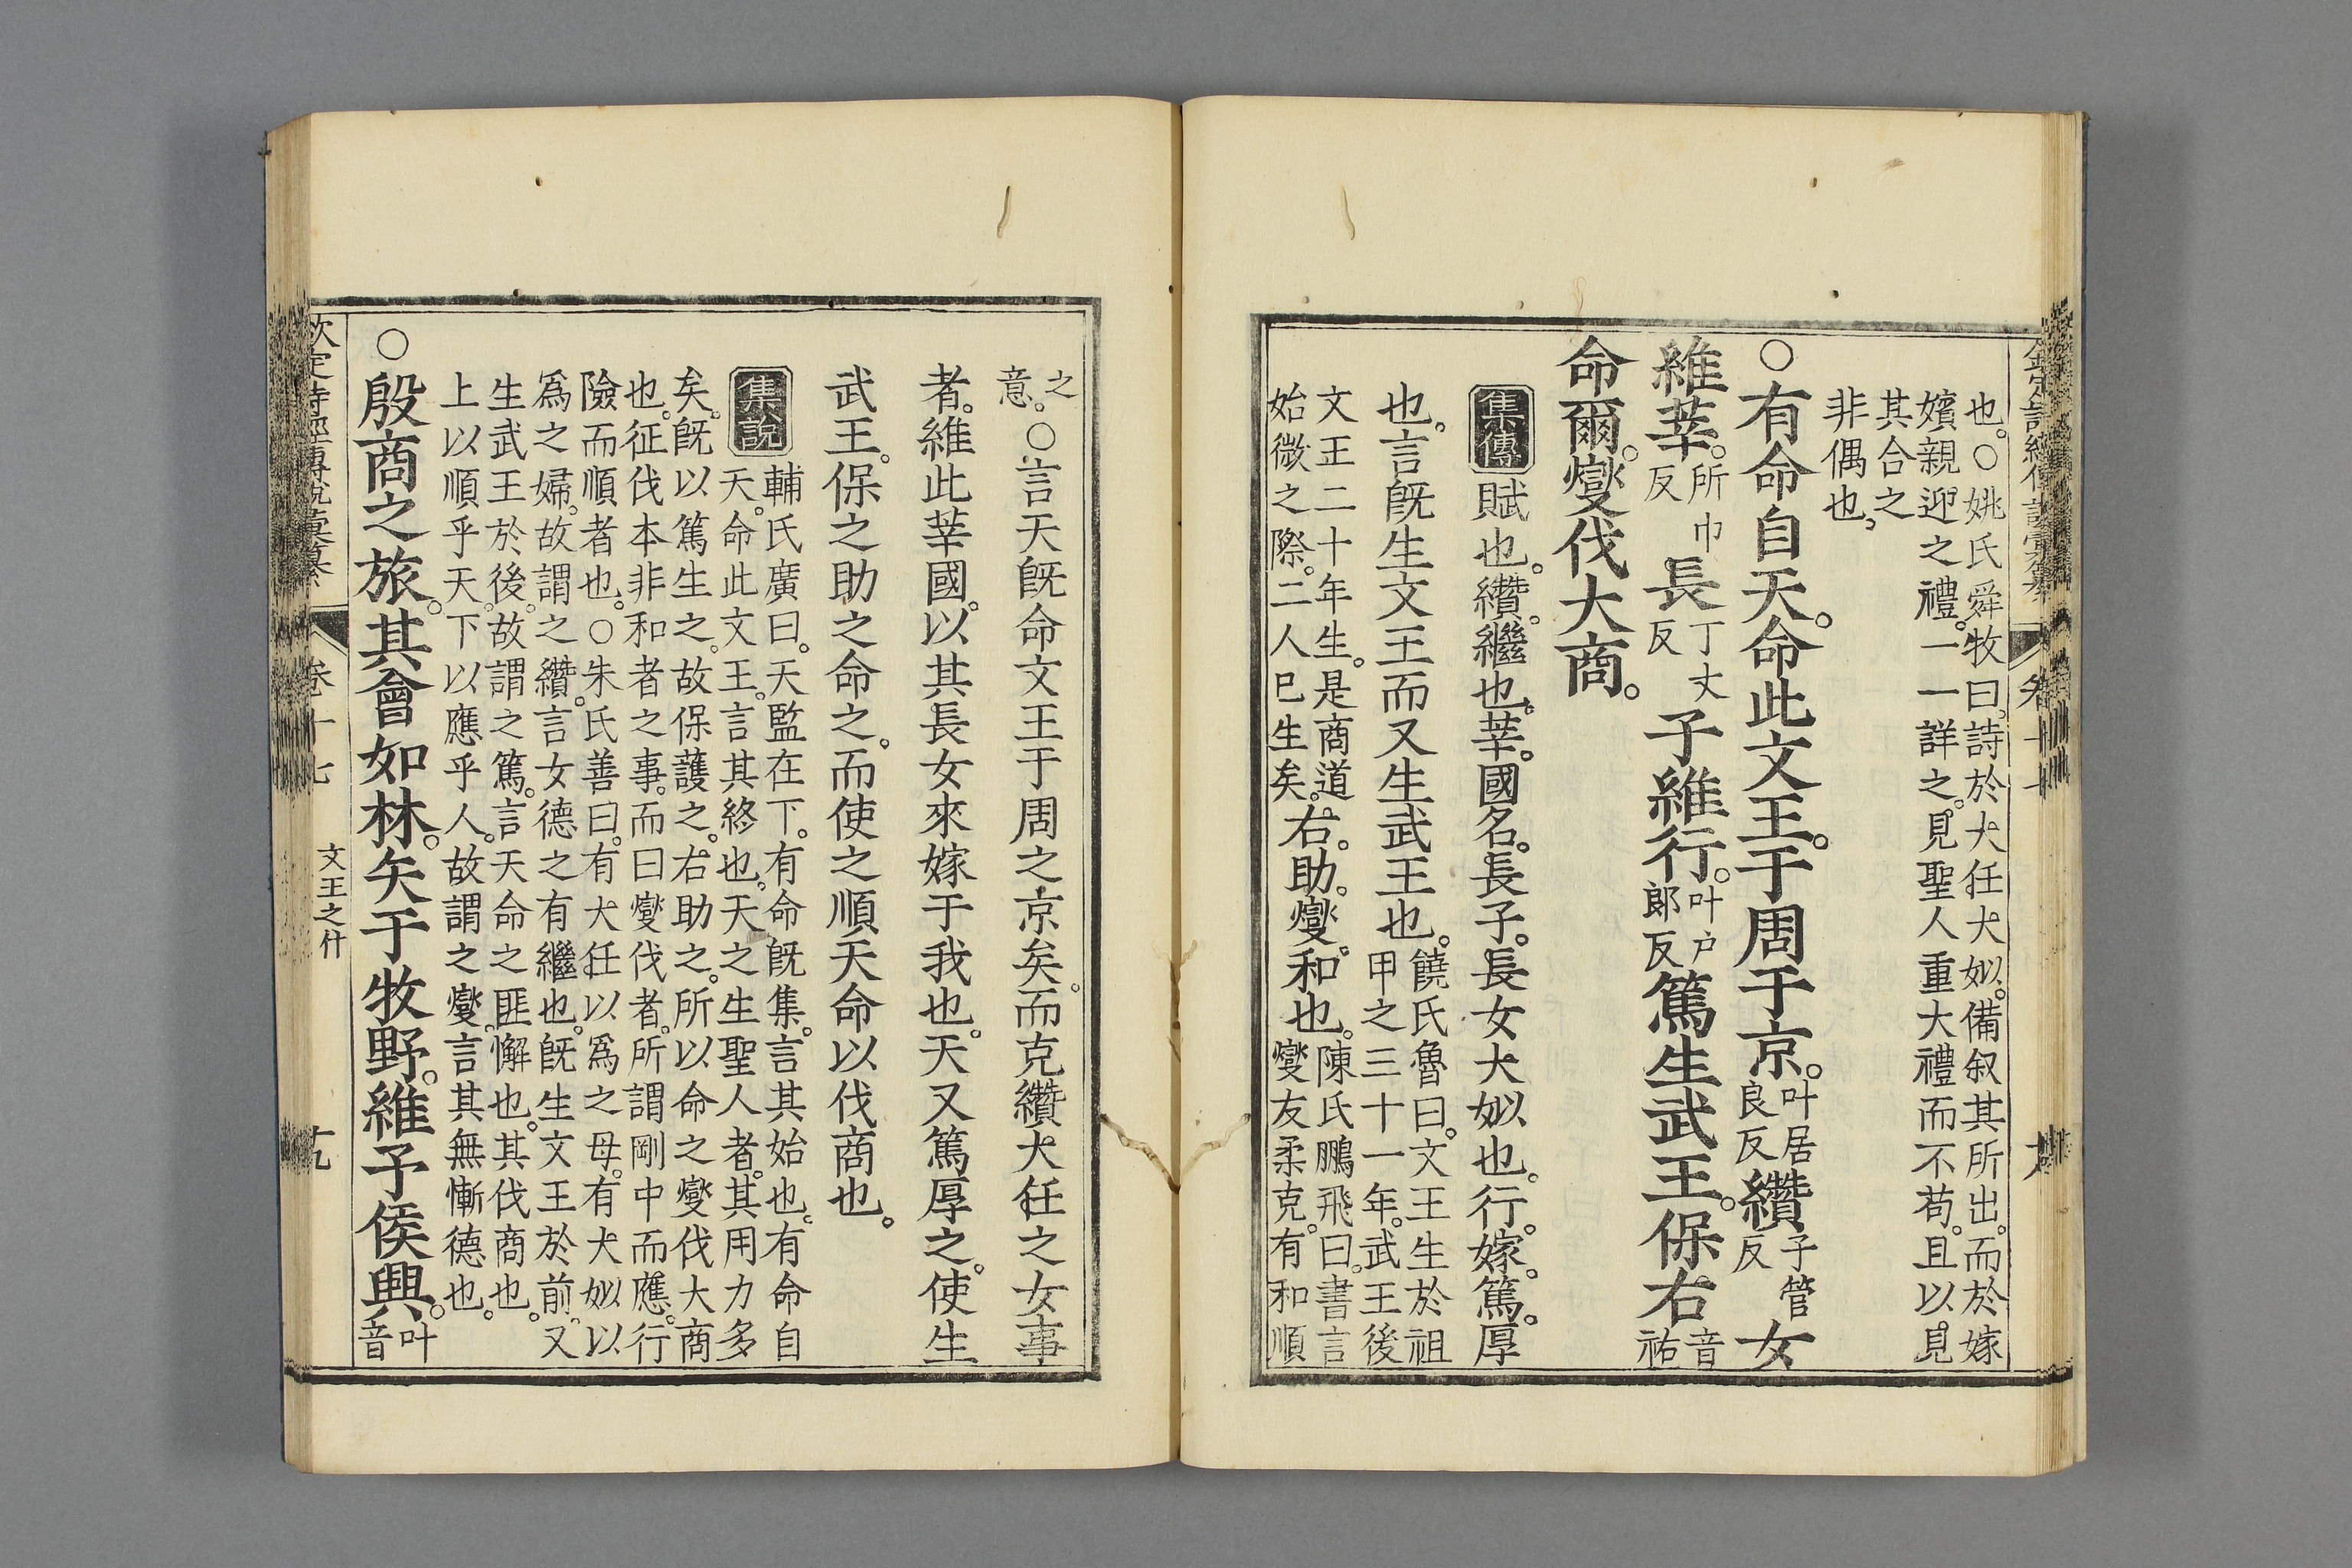 也。○姚氏舜牧曰。詩於大任大姒。備叙其所出。而於嫁
嬪親迎之禮。一一詳之。見聖人重大禮而不苟。且以見
其合之
非偶也。
○有命自天。命此文王。于周于京。叶居良反纘子管反女
維莘。所巾反長丁丈反子維行。叶戶郎反篤生武王。保右音祐
命爾。燮伐大商。
集傳 賦也。纘。繼也。莘。國名。長子。長女大姒也。行。嫁。篤。厚
也。言旣生文王而又生武王也。饒氏魯曰。文王生於祖甲之三十一年。武王後
文王二十年生。是商道始微之際。二人已生矣。右。助。燮。和也。陳氏鵬飛曰。書言燮友柔克。有和順
之意。○言天旣命文王于周之京矣。而克纘大任之女事
者。維此莘國。以其長女來嫁于我也。天又篤厚之。使生
武王。保之助之命之。而使之順天命以伐商也。
集說 輔氏廣曰。天監在下。有命旣集。言其始也。有命自
天。命此文王。言其終也。天之生聖人者。其用力多
矣。旣以篤生之。故保護之。右助之。所以命之燮伐大商
也。征伐本非和者之事。而曰燮伐者。所謂剛中而應。行
險而順者也。○朱氏善曰。有大任以爲之母。有大姒以
爲之婦。故謂之纘。言女德之有繼也。旣生文王於前。又
生武王於後。故謂之篤。言天命之匪懈也。其伐商也。
上以順乎天。下以應乎人。故謂之燮。言其無慚德也。
○殷商之旅。其會如林。矢于牧野。維予侯興。叶音
欽定詩經傳說彙纂 卷十七 文王之什 十九